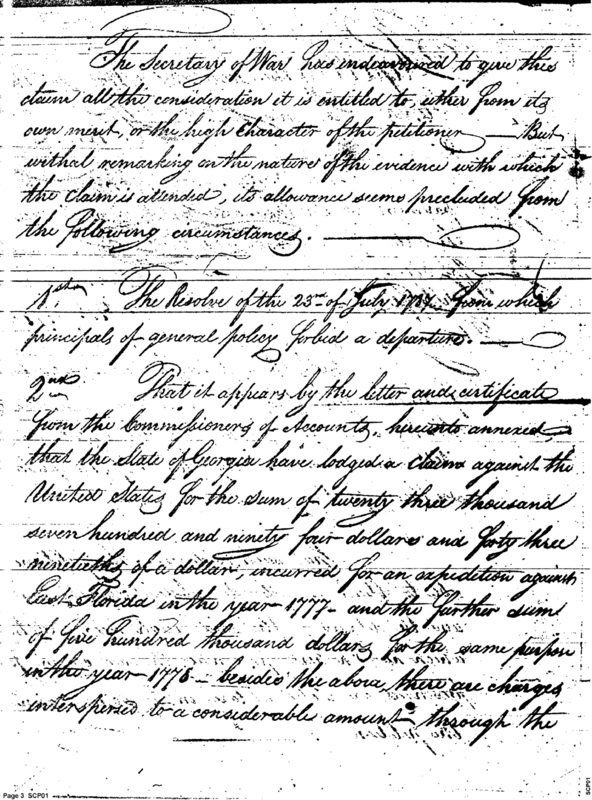 The Secretary of War has endeavoured to give this
claim all the consideration it is entitled to, either from its
own merit, or the high character of the petitioner — But
withal remarking on the nature of the evidence with which
the claim is attended, its allowance seems precluded from
the following circumstances. —
1st. The Resolve of the 23rd of July 1787 from which
principals of general policy forbid a departure. —
2nd. That it appears by the letter and certificate
from the Commissioners of Accounts, hereunto annexed,
that the State of Georgia have lodged a claim against the
United States for the sum of twenty three thousand
seven hundred and ninety four dollars and forty three
ninetieths of a dollar, incurred for an expedition against
East Florida in the year 1777 - and the further sums
of five hundred thousand dollars for the same purpose
in the year 1778 - besides the above, there are charges
interspersed to a considerable amount through the
Page 3 SCP01
SCP01